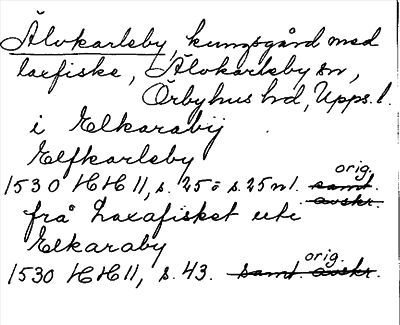 Älvkarleby, kungsgård med
laxfiske, Älvkarleby sn,
Örbyhus hd, Upps. l.
i Elkarabÿ
Elfkarleby
1530 HH II, s. 25 o s. 25 n 1. samt. avskr. orig.
frå Laxafisket uti
Elkaraby
1530 HH II, s. 43. samt. avskr. orig.